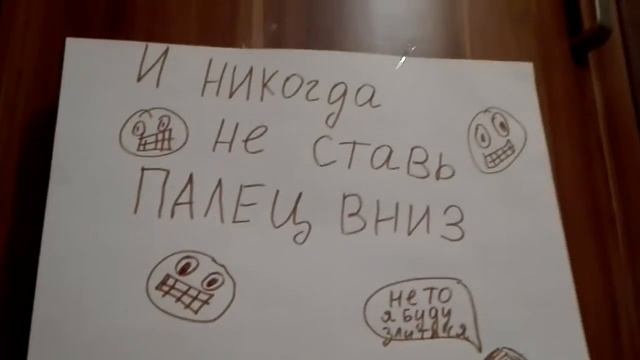 И никогда
не ставь
ПАЛЕЦ ВНИЗ
не то
я буду
злиться